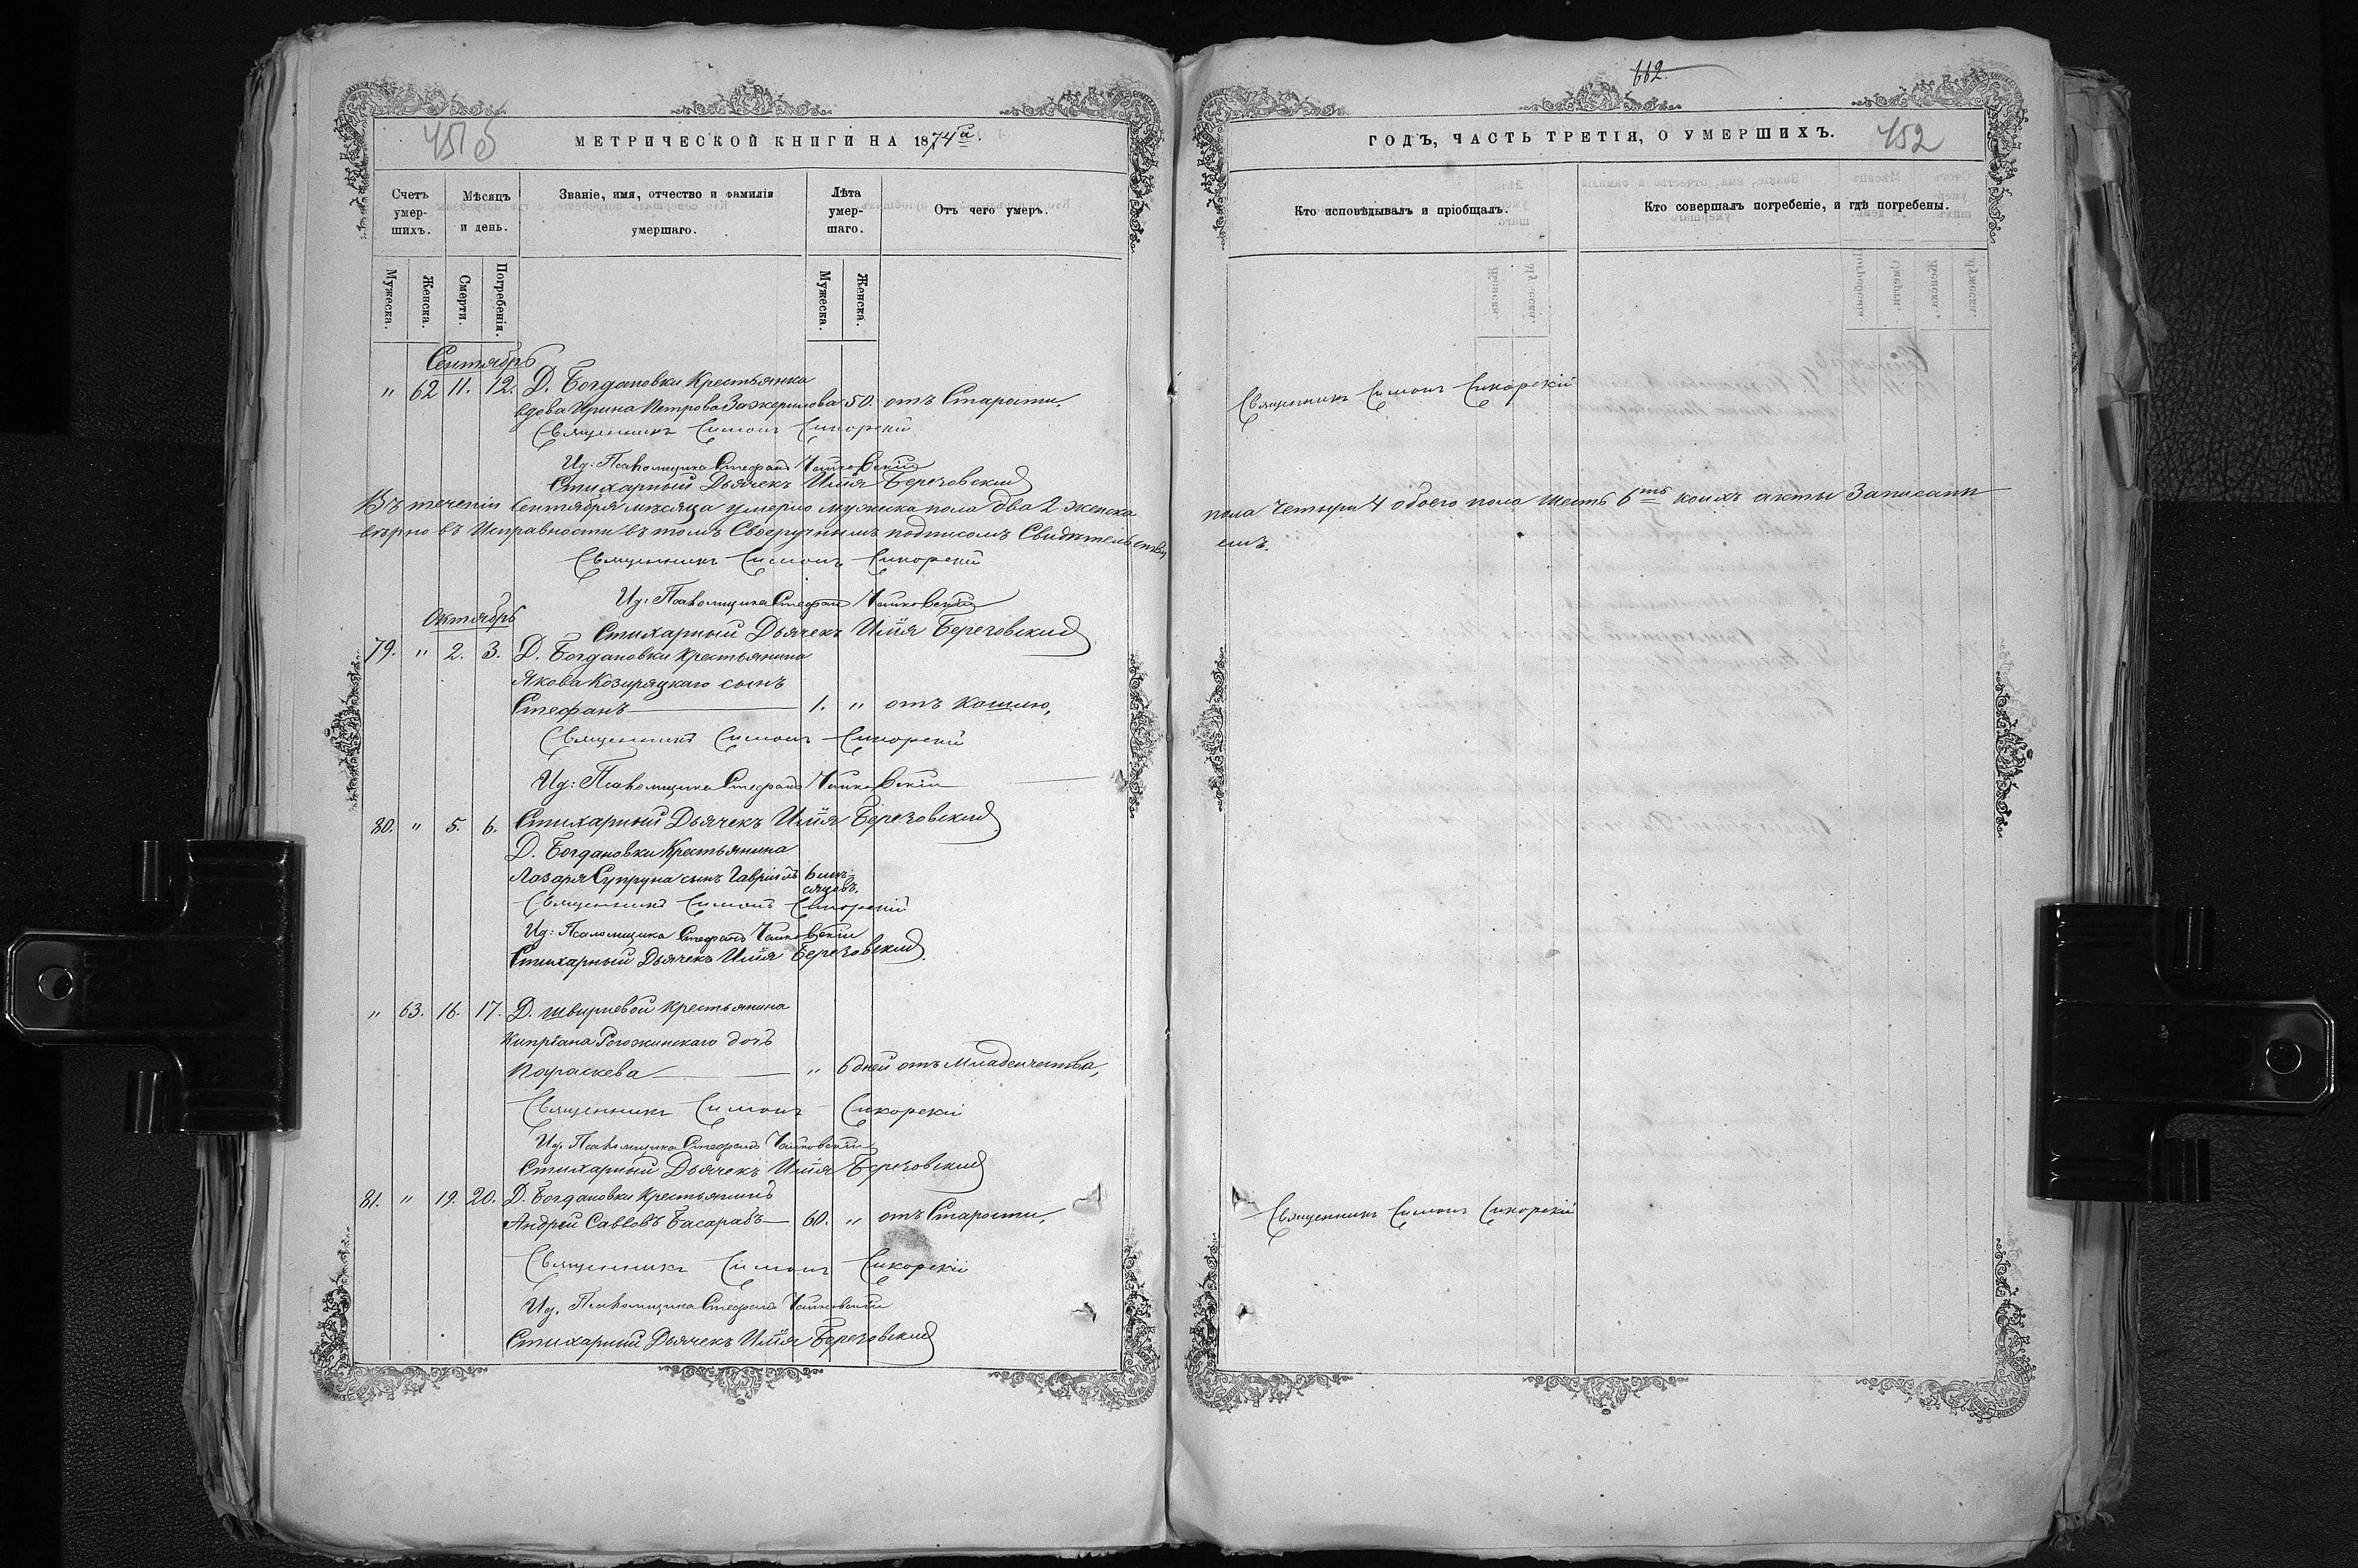 451 б
МЕТРИЧЕСКОЙ КНИГИ НА 1874й
Счетъ умер-шихъ.
Мѣсяцъ и день.
Званіе, имя, отчество и фамилія умершаго.
Лѣта умер-шаго.
Отъ чего умеръ.
Мужеска.
Женска.
Смерти.
Погребенія.
Мужеска.
Женска.
Сентябрь
" 62 11. 12. Д. Богдановки Крестьянка
вдова Ирина Петрова 50. отъ Старости.
Священникъ Симонъ Сикорскій
Ид: Псаломщика Стефанъ Чайковскій
Стихарный Дьячекъ Илія Березовскій
Въ теченіи Сентября мѣсяца умерло мужеска пола два 2 женска
вѣрно въ Исправности въ томъ Своеручнымъ подписомъ Свидѣтельству
Священникъ Симонъ Сикорскій
Ид: Псаломщика Стефанъ Чайковскій
Октябрь
Стихарный Дьячекъ Илія Березовскій
79. " 2. 3. Д. Богдановки Крестьянина
Якова Козирацкаго сынъ
Стефанъ 1. " отъ кошлю,
Священникъ Симонъ Сикорскій
Ид: Псаломщика Стефанъ Чайковскій
80. " 5. 6. Стихарный Дьячекъ Илія Березовскій
Д. Богдановки Крестьянина
Лазаря Супруна сынъ Гавріилъ 6 мѣ-
сяцовъ.
Священникъ Симонъ Сикорскій
Ид: Псаломщика Стефанъ Чайковскій
Стихарный Дьячекъ Илія Березовскій.
" 63. 16. 17. Д. Крестьянина
Кипріана Рогожинскаго дочь
Параскева " 6 дней отъ Младенчества,
Священникъ Симонъ Сикорскій
Ид. Псаломщика Стефанъ Чайковскій
Стихарный Дьячекъ Илія Березовскій
81. " 19. 20. Д. Богдановки Крестьянинъ
Андрей Саввовъ Басарабъ 60. " отъ Старости,
Священникъ Симонъ Сикорскій
Ид. Псаломщика Стефанъ Чайковскій
Стихарный Дьячекъ Илія Березовскій
662.
ГОДЪ, ЧАСТЬ ТРЕТІЯ, О УМЕРШИХЪ.
452
Кто исповѣдывалъ и пріобщалъ.
Кто совершалъ погребеніе, и гдѣ погребены.
Священникъ Симонъ Сикорскій
пола Четыри 4 обоего пола шесть 6ть коихъ акты Записаны
емъ.
Священникъ Симонъ Сикорскій